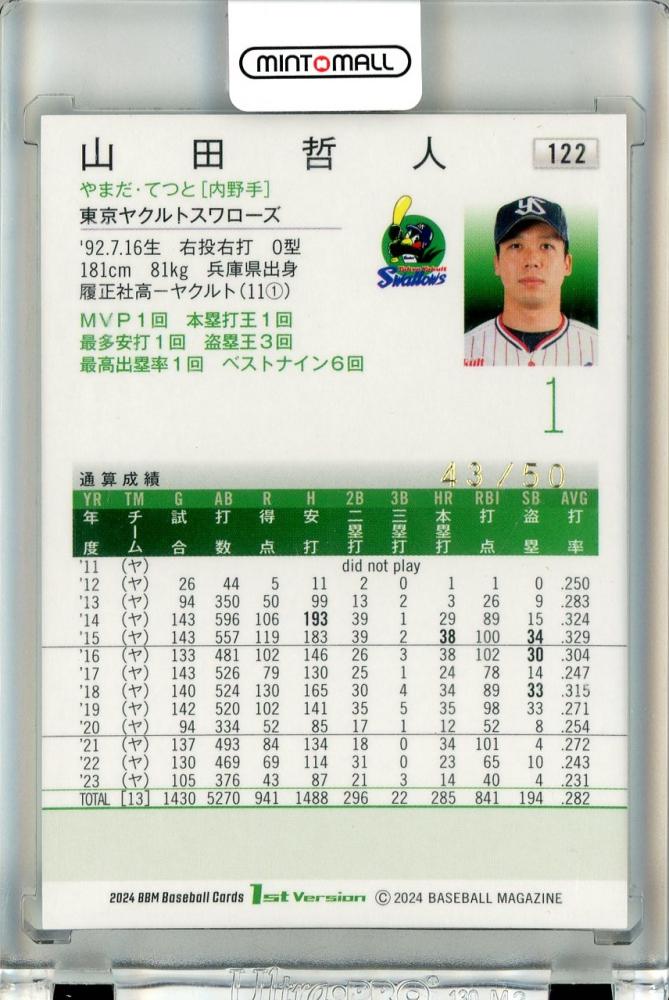 MINTOMALL
山田哲人 122
やまだ・てつと[内野手]
東京ヤクルトスワローズ
'92.7.16生 右投右打 O型
181cm 81kg 兵庫県出身
履正社高ーヤクルト(11①)
MVP1回 本塁打王1回
最多安打1回 盗塁王3回
最高出塁率1回 ベストナイン6回
Tokyo Yakult
Swallows
YS
kult
1
通算成績 43/50
YR TM G AB R H 2B 3B HR RBI SB AVG
年度 チーム 試合 打数 得点 安打 二塁打 三塁打 本塁打 打点 盗塁 打率
'11 (ヤ) did not play
'12 (ヤ) 26 44 5 11 2 0 1 1 0 .250
'13 (ヤ) 94 350 50 99 13 2 3 26 9 .283
'14 (ヤ) 143 596 106 193 39 1 29 89 15 .324
'15 (ヤ) 143 557 119 183 39 2 38 100 34 .329
'16 (ヤ) 133 481 102 146 26 3 38 102 30 .304
'17 (ヤ) 143 526 79 130 25 1 24 78 14 .247
'18 (ヤ) 140 524 130 165 30 4 34 89 33 .315
'19 (ヤ) 142 520 102 141 35 5 35 98 33 .271
'20 (ヤ) 94 334 52 85 17 1 12 52 8 .254
'21 (ヤ) 137 493 84 134 18 0 34 101 4 .272
'22 (ヤ) 130 469 69 114 31 0 23 65 10 .243
'23 (ヤ) 105 376 43 87 21 3 14 40 4 .231
TOTAL [13] 1430 5270 941 1488 296 22 285 841 194 .282
2024 BBM Baseball Cards 1st Version © 2024 BASEBALL MAGAZINE
Ultra PRO®